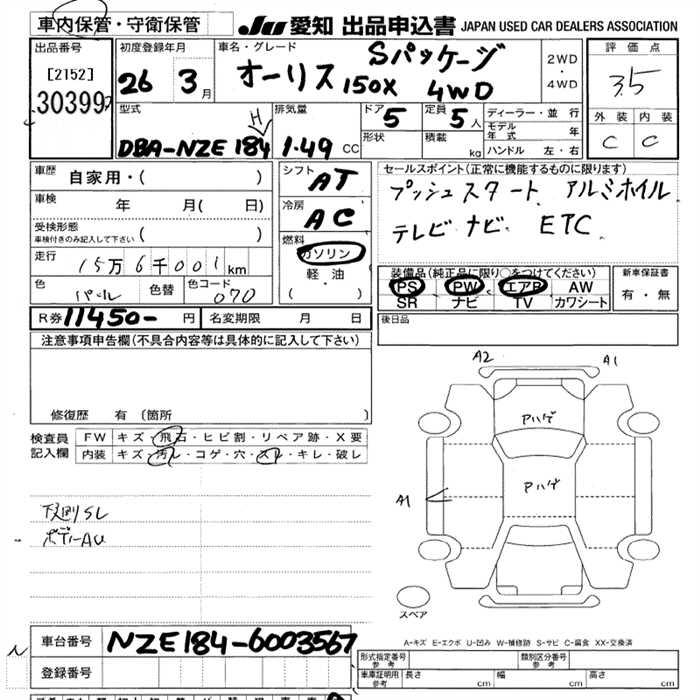 車内保管・守衛保管 JU 愛知 出品申込書 JAPAN USED CAR DEALERS ASSOCIATION
出品番号 [2152] 30399
初度登録年月 26 3月
車名・グレード オーリス 150X Sパッケージ 4WD
2WD・4WD
評価点 3.5
外装 内装
C C
型式 DBA-NZE184H
排気量 1.49 CC
ドア 5 形状
定員 5人 積載 kg
ディーラー・並行
モデル年式 年
ハンドル 左・右
車歴 自家用・( )
車検 年 月( 日)
受検形態 車検付きのみ記入して下さい ( )
走行 15万6千001km
色 パール 色替 色コード 070
シフト AT
冷房 AC
燃料 ガソリン
軽・油
( )
セールスポイント(正常に機能するものに限ります)
プッシュスタート アルミホイル
テレビ ナビ ETC
装備品(純正品に限り○をつけてください)
PS PW エアB AW
SR ナビ TV カワシート
新車保証書
有・無
R券 11450- 円 名変期限 月 日
後日品
注意事項申告欄(不具合内容等は具体的に記入して下さい)
修復歴 有(箇所 )
検査員記入欄
FW キズ・飛石・ヒビ割・リペア跡・X要
内装 キズ・汚レ・コゲ・穴・スレ・キレ・破レ
下廻りSL
ボデーAU
A2 A1
Pハゲ
Pハゲ
A1
スペア
A-キズ E-エクボ U-凹み W-補修跡 S-サビ C-腐食 XX-交換済
車台番号 NZE184-6003567
登録番号
型式指定番号 参考 類別区分番号 参考
車庫証明用 参考 長さ cm 幅 cm 高さ cm